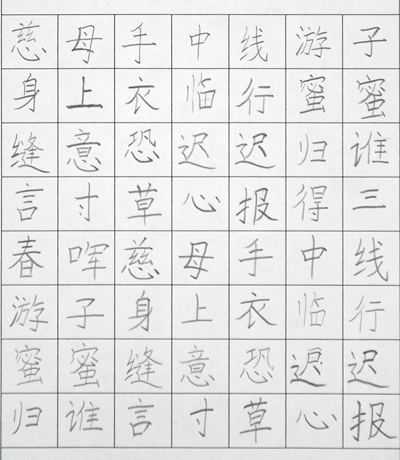 慈母手中线游子
身上衣临行蜜蜜
缝意恐迟迟归谁
言寸草心报得三
春晖慈母手中线
游子身上衣临行
蜜蜜缝意恐迟迟
归谁言寸草心报